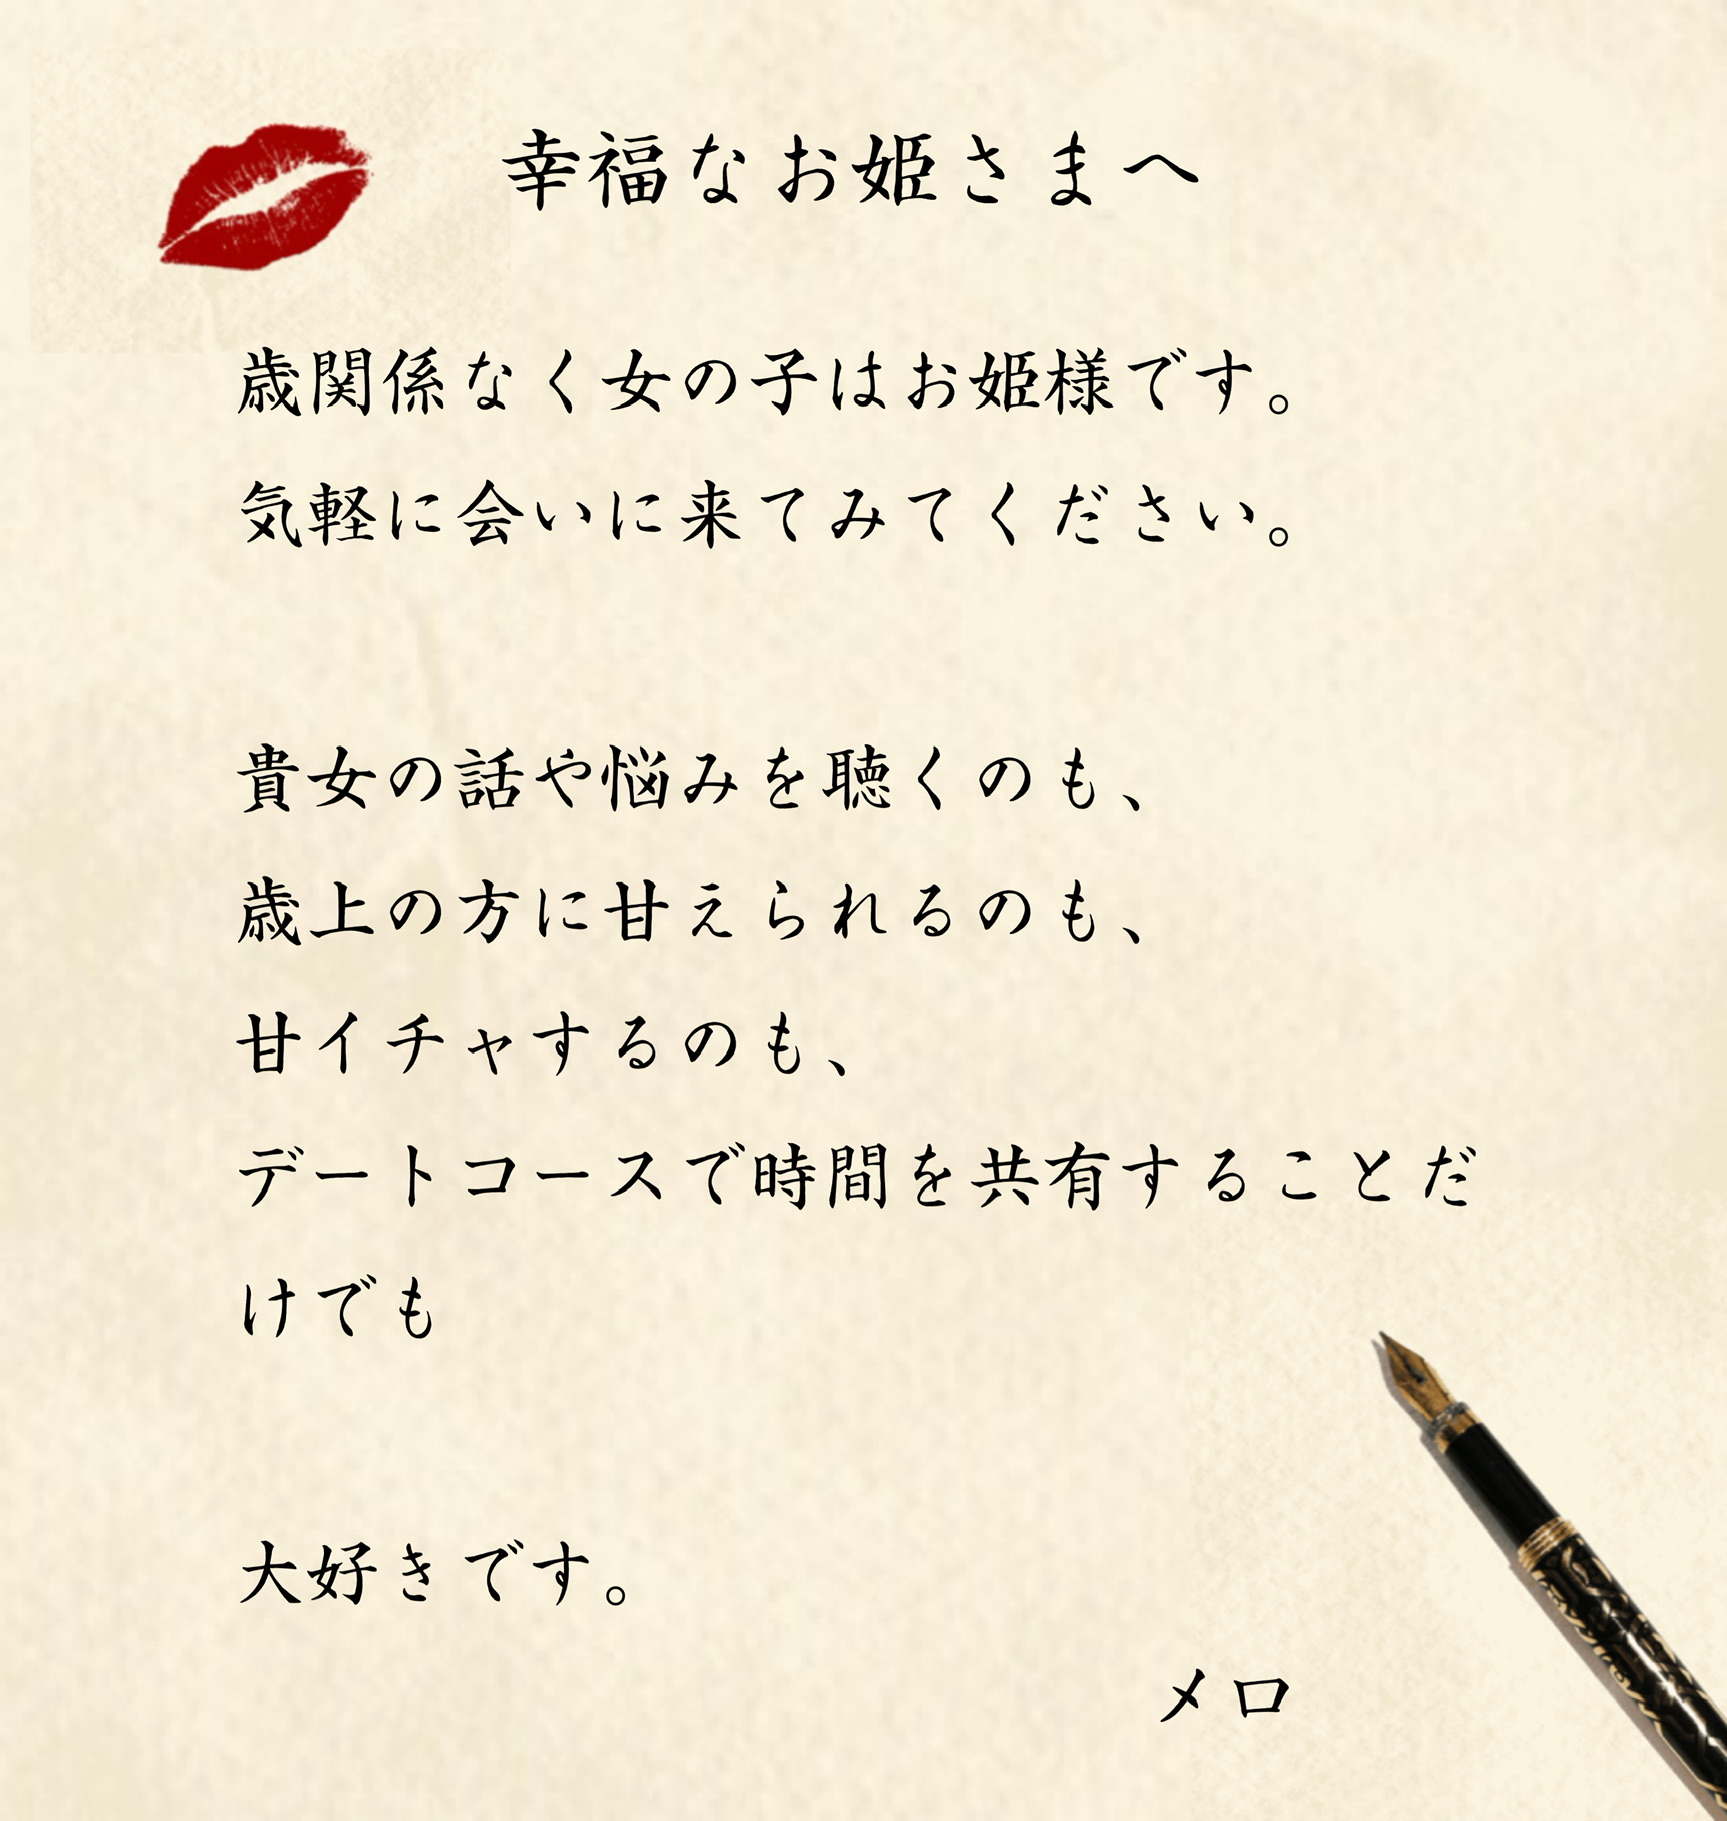 幸福なお姫さまへ
歳関係なく女の子はお姫様です。
気軽に会いに来てみてください。
貴女の話や悩みを聴くのも、
歳上の方に甘えられるのも、
甘イチャするのも、
デートコースで時間を共有することだ
けでも
大好きです。
メロ